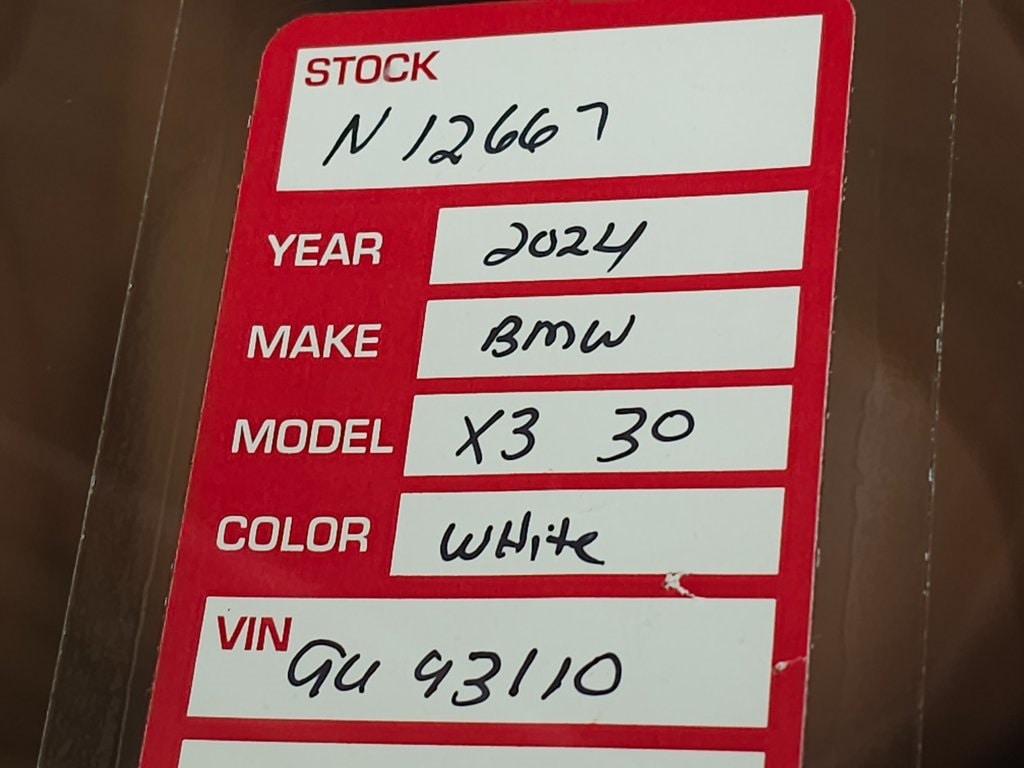 STOCK
N 12667
YEAR 2024
MAKE BMW
MODEL X3 30
COLOR WHite
VIN 9U 93110